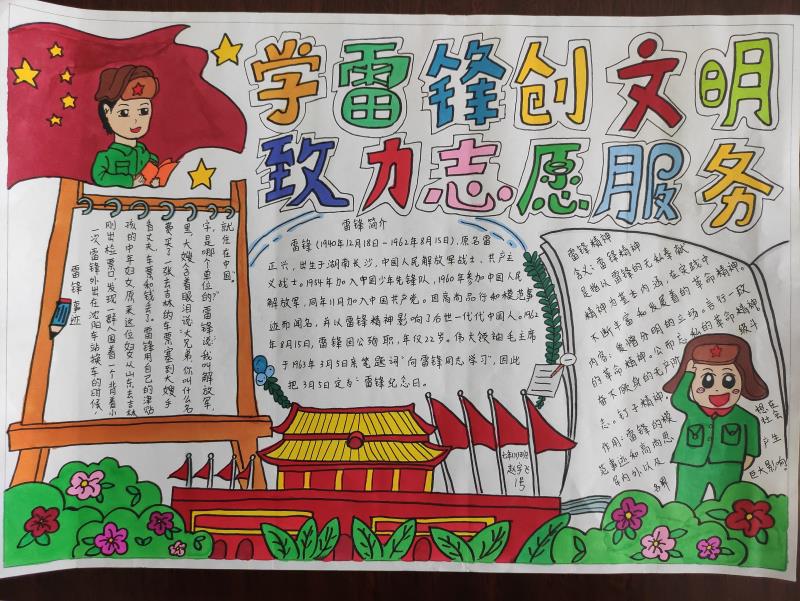 学雷锋创文明
致力志愿服务
雷锋简介
雷锋(1940年12月18日-1962年8月15日),原名雷
正兴,出生于湖南长沙,中国人民解放军战士,共产主
义战士。1954年加入中国少年先锋队,1960年参加中国人民
解放军,同年11月加入中国共产党。因高尚品行和模范事
迹而闻名,并以雷锋精神影响了后世一代代中国人。1962
年8月15日,雷锋因公殉职,年仅22岁。伟大领袖毛主席
于1963年3月5日亲笔题词“向雷锋同志学习”,因此
把3月5日定为“雷锋纪念日。
雷锋事迹
一次雷锋外出在沈阳车站换车的时候,
刚出检票口,发现一群人围着一个背着小
孩的中年妇女,原来这位妇女从山东去吉林
看丈夫,车票和钱丢了。雷锋用自己的津贴
费买了一张去吉林的车票塞到大嫂手
里,大嫂含着眼泪说:“大兄弟,你叫什么名
字,是哪个单位的?”雷锋说:“我叫解放军,
就住在中国”。
雷锋精神
含义:雷锋精神
是指以雷锋的无私奉献
精神为基本内涵,在实践中
不断丰富和发展着的革命精神。
内容:爱憎分明的立场。言行一致
的革命精神。公而忘私的革命精神。
奋不顾身的无产阶
级斗
志。钉子精神。
作用:雷锋的模
范事迹和高尚思
想在
社会
产生
巨大影响
赵宇飞
1号